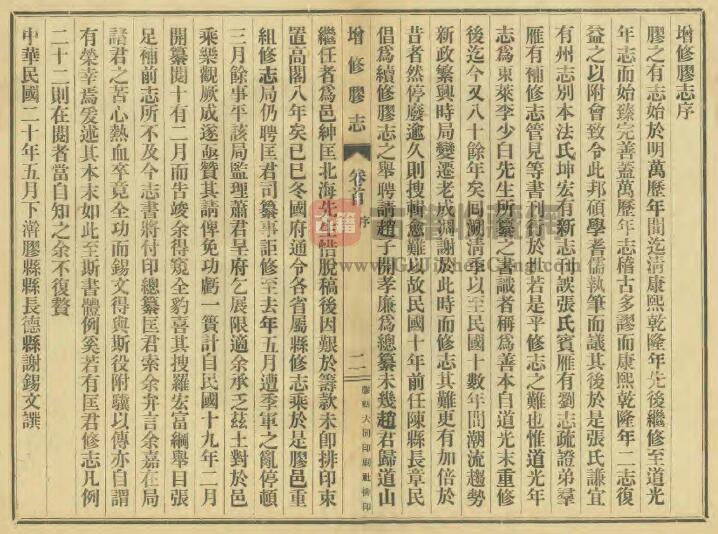 增修膠志序
膠之有志始於明萬歷年間迄清康熙乾隆年先後繼修至道光
年志而始臻完善蓋萬歷年志稽古多謬而康熙乾隆年二志復
益之以附會致令此邦碩學者儒執筆而議其後於是張氏謙宜
有州志別本法氏坤宏有新志刊誤張氏賓雁有劉志疏證弟羣
雁有補修志管見等書刊行於世若是乎修志之難也惟道光年
志爲東萊李少白先生所纂之書識者稱爲善本自道光末重修
後迄今又八十餘年矣同 清季以至民國十數年間潮流趨勢
新政繁興時局變遷老成凋謝於此時而修志其難更有加倍於
昔者然停廢逾久則搜輯愈難以故民國十年前任陳縣長章民
倡爲續修膠志之舉聘請趙子開孝廉爲總纂未幾趙君歸道山
增修膠志 卷首 序 二 膠縣大同印刷社排印
繼任者爲邑紳匡北海先生惜脫稿後因艱於籌款未卽排印束
置高閣八年矣已巳冬國府通令各省屬縣修志乘於是膠邑重
組修志局仍聘匡君司纂事詎修至去年五月遭季軍之亂停頓
三月餘事平該局監理蕭君呈府乞展限適余承乏玆土對於邑
乘樂觀厥成遂亟贊其請俾免功虧一簣計自民國十九年二月
開纂閱十有二月而告竣余得窺全豹喜其搜羅宏富綱舉目張
足補前志所不及今志書將付印總纂匡君索余弁言余嘉在局
諸君之苦心熱血卒竟全功而錫文得與斯役附驥以傳亦自謂
有榮幸焉爰述其本末如此至斯書體例奚若有匡君修志凡例
二十二則在閱者當自知之余不復贅
中華民國二十年五月下澣膠縣縣長德縣謝錫文譔